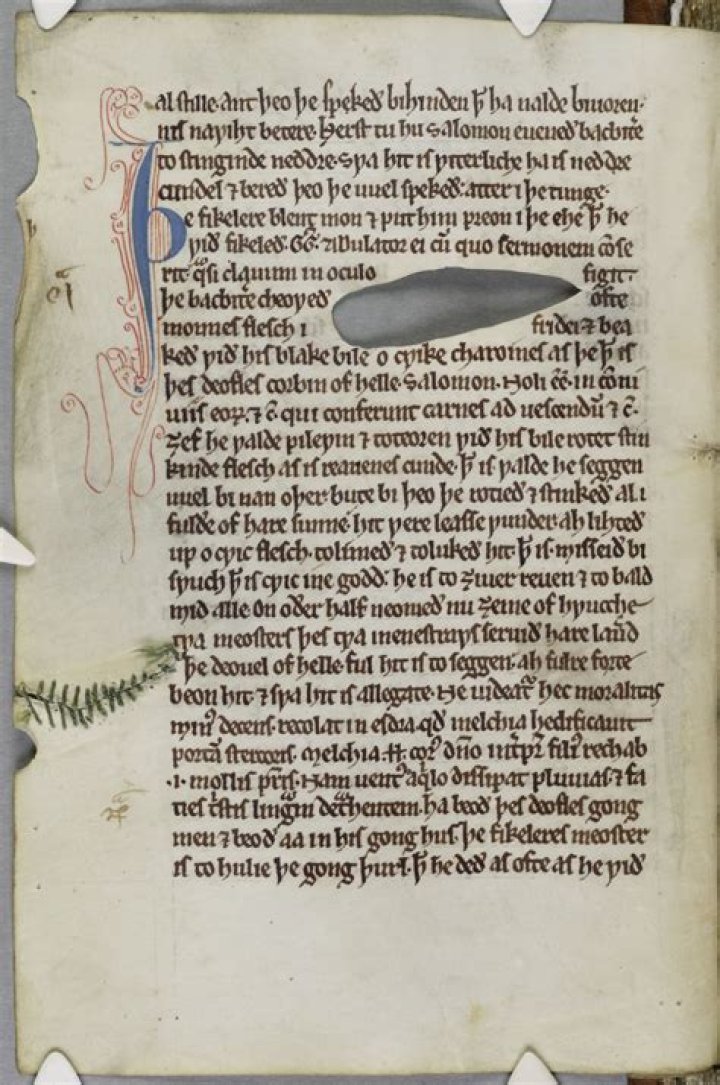 al stille. ant þeo þe spekeð bihinden ꝥ ha nalde biuoren.
nis nawiht betere. Herst tu hu salomon eueneð bacbitͤre
to stinginde neddre. Swa hit is witerliche ha is neddre
cundel ⁊ bereð þeo þe uuel spekeð. atter i þe tunge.
Þe fikelere blent mon ⁊ put him preon i þe ehe ꝥ he
wið fikeleð. GG. Adulator ei cū quo sermonem cōse
rit qͣsi clauum in oculo figit.
Þe bacbitͤre cheoweð ofte
monnes flesch i fridei ⁊ bea
keð wið his blake bile o cwike charoines as þe ꝥ is
þes deofles corbin of helle. Salomon. Noli eē. in cōui
uiis eoꝝ. ⁊ c̄. qui conferunt carnes ad uescendū ⁊ c̄.
Ȝef he walde pilewin ⁊ toteoren wið his bile rotet stin
kinde flesch as is reauenes cunde. ꝥ is walde he seggen
uuel bi nan oþer bute bi þeo þe rotieð ⁊ stinkeð al i
fulðe of hare sunne. hit were leasse wunder. ah lihteð
up o cwic flesch. tolimeð ⁊ tolukeð hit. ꝥ is. misseið bi
swuch ꝥ is cwic ine godd. he is to ȝiuer reuen ⁊ to bald
mid alle. On oðer half neomeð nu ȝeme of hwucche
twa meosters þes twa menestraws seruið hare lauerd
þe deouel of helle. ful hit is to seggen. ah fulre forte
beon hit. ⁊ swa hit is allegate. Ne uideatͬ hec moralitas
minꝰ decens. recolat in esdra qd̄ melchia hedificauit
portā stercoris. Melchia. ꝉꝉ. corͬ dn̄o int̄prͬ. filiꝰ rechab
.i. mollis pr̄is. Nam uentꝰ aqͥlo dissipat pluuias. ⁊ fa
cies tͥstis linguͣm detͣhentem. ha beoð þes deofles gong
men ⁊ beoð aa in his gong hus. þe fikeleres meoster
is to hulie þe gong þurl. ꝥ he deð as ofte as he wið